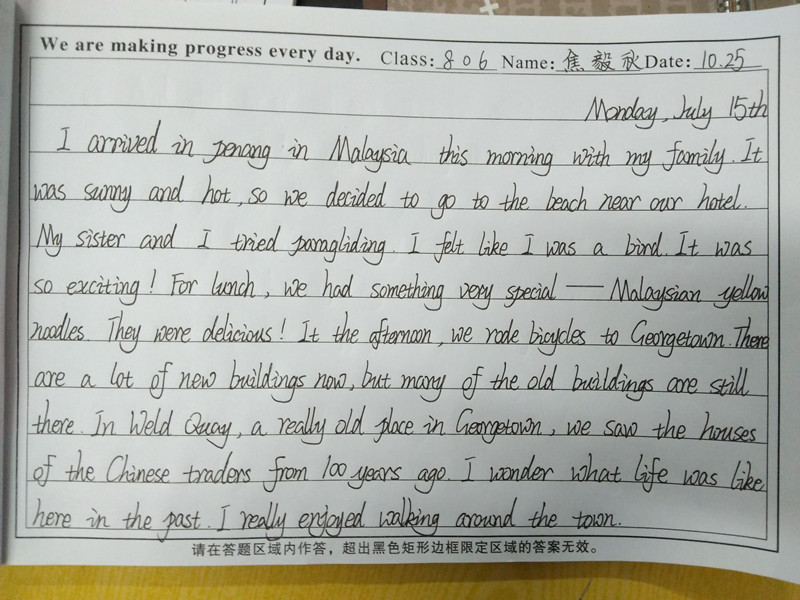 We are making progress every day. Class: 806 Name: 焦毅秋 Date: 10.25
Monday, July 15th
I arrived in penang in Malaysia this morning with my family. It
was sunny and hot, so we decided to go to the beach near our hotel.
My sister and I tried paragliding. I felt like I was a bird. It was
so exciting! For lunch, we had something very special — Malaysian yellow
noodles. They were delicious! It the afternoon, we rode bicycles to Georgetown. There
are a lot of new buildings now, but many of the old buildings are still
there. In Weld Quay, a really old place in Georgetown, we saw the houses
of the Chinese traders from 100 years ago. I wonder what life was like
here in the past. I really enjoyed walking around the town.
请在答题区域内作答，超出黑色矩形边框限定区域的答案无效。